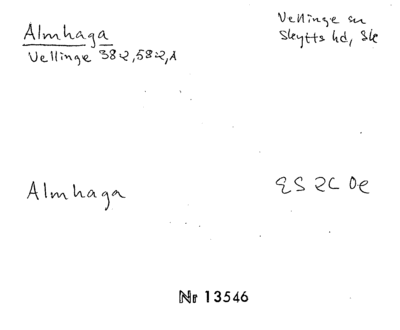 Almhaga
Vellinge sn
Skytts hd, Sk
Vellinge 38:2, 58:2, A
Almhaga
2C 0e
Nr 13546